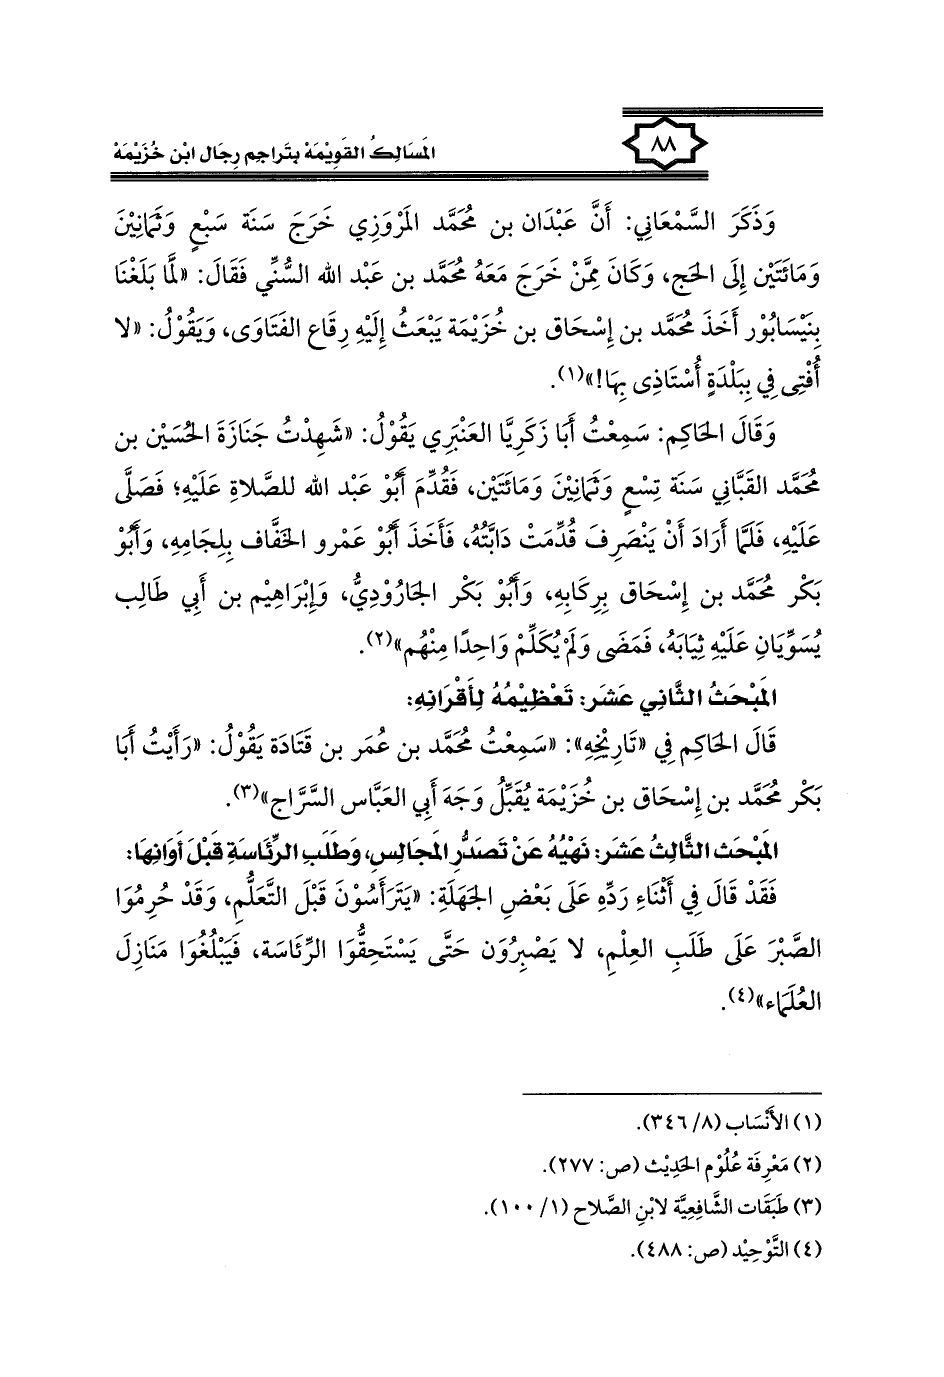 ٨٨
المَسَالِكُ القَوِيْمَهْ بتَراجِم رِجَال ابْن خُزَيْمَهْ
وَذَكَرَ السَّمْعَاني: أَنَّ عَبْدَان بن مُحَمَّد المَرْوَزِي خَرَجَ سَنَة سَبْعٍ وَثَمَانِيْنَ
وَمَائَتَيْن إِلَى الحَج، وَكَانَ مِمَّنْ خَرَجَ مَعَهُ مُحَمَّد بن عَبْد الله السُّنِّي فَقَالَ: «لمَّا بَلَغْنَا
بِنَيْسَابُوْر أَخَذَ مُحَمَّد بن إِسْحَاق بن خُزَيْمَة يَبْعَثُ إِلَيْهِ رِقَاع الفَتَاوَى، وَيَقُوْلُ: «لا
أُفْتِى فِي بِبَلْدَةٍ أُسْتَاذِى بِهَا!»(١).
وَقَالَ الحَاكِم: سَمِعْتُ أَبَا زَكَرِيَّا العَنْبَرِي يَقُوْلُ: «شَهِدْتُ جَنَازَةَ الحُسَيْن بن
مُحَمَّد القَبَّاني سَنَة تِسْعٍ وَثَمَانِيْنَ وَمَائَتَيْن، فَقُدِّمَ أَبُوْ عَبْد الله للصَّلاة عَلَيْهِ؛ فَصَلَّى
عَلَيْهِ، فَلَمَّا أَرَادَ أَنْ يَنْصَرِفَ قُدِّمَتْ دَابَّتُهُ، فَأَخَذَ أَبُوْ عَمْرو الخَفَّاف بِلِجَامِهِ، وَأَبُوْ
بَكْر مُحَمَّد بن إِسْحَاق بِرِكَابِهِ، وَأَبُوْ بَكْر الجَارُوْدِيُّ، وَإِبْرَاهِيْم بن أَبي طَالِب
يُسَوِّيَانِ عَلَيْهِ ثِيَابَهُ، فَمَضَى وَلَمْ يُكَلِّمْ وَاحِدًا مِنْهُم»(٢).
المَبْحَثُ الثَّاني عَشَر: تَعْظِيْمُهُ لِأَقْرَانِهِ:
قَالَ الحَاكِم فِي «تَارِيْخِهِ»: «سَمِعْتُ مُحَمَّد بن عُمَر بن قَتَادَة يَقُوْلُ: «رَأَيْتُ أَبَا
بَكْر مُحَمَّد بن إِسْحَاق بن خُزَيْمَة يُقَبِّلُ وَجَهَ أَبي العَبَّاس السَّرَّاج»(٣).
المَبْحَث الثَّالِثُ عَشَر: نَهْيُهُ عَنْ تَصَدُّرِ المَجَالِسِ، وَطَلَبِ الرِّئَاسَةِ قَبْلَ أَوَانِهَا:
فَقَدْ قَالَ فِي أَثْنَاءِ رَدِّهِ عَلَى بَعْضِ الجَهَلَةِ: «يَتَرَأَسُوْنَ قَبْلَ التَّعَلُّمِ، وَقَدْ حُرِمُوَا
الصَّبْرَ عَلَى طَلَبِ العِلْمِ، لا يَصْبِرُوَن حَتَّى يَسْتَحِقُّوَا الرِّئَاسَة، فَيَبْلُغُوَا مَنَازِلَ
العُلَمَاء»(٤).
(١) الأَنْسَاب (٨/ ٣٤٦).
(٢) مَعْرِفَة عُلُوْم الحَدِيْث (ص: ٢٧٧).
(٣) طَبَقَات الشَّافِعِيَّة لابْنِ الصَّلاح (١/ ١٠٠).
(٤) التَّوْحِيْد (ص: ٤٨٨).